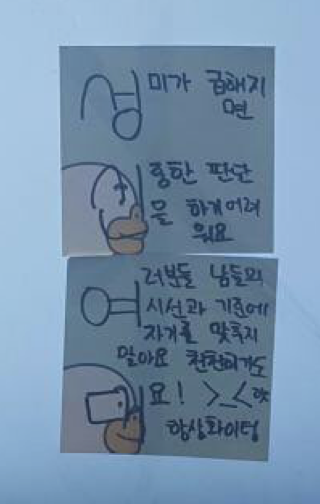 성 미가 급해지
면
한 판단
을 하기어려
워요
여 러분들 남들의
시선과 기준에
자기를 맞추지
말아요 천천히가도
요! >_<
항상화이팅